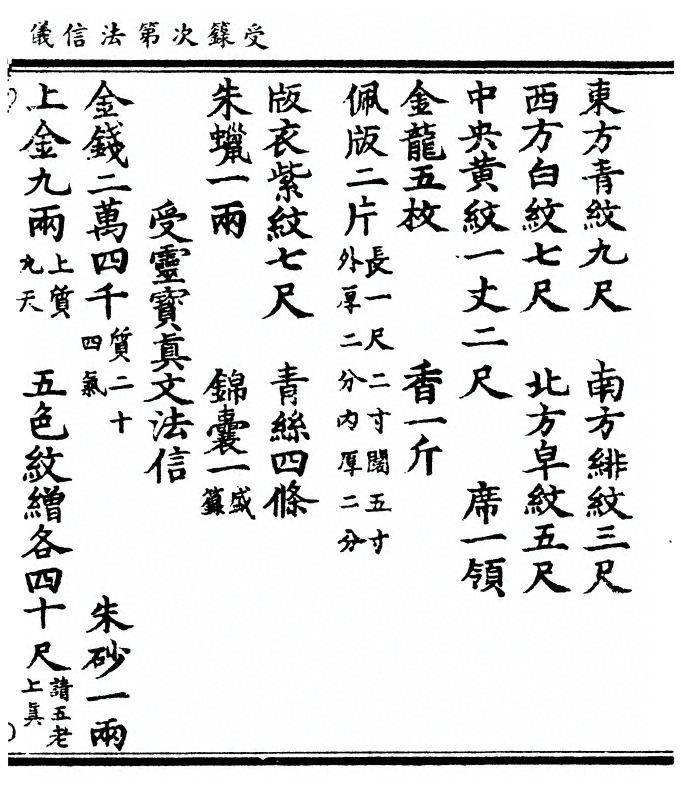 受籙次第法信儀
東方青紋九尺　南方緋紋三尺
西方白紋七尺　北方皁紋五尺
中央黄紋一丈二尺　席一領
金龍五枚　香一斤
佩版二片長一尺二寸闊五寸外厚二分内厚二分
版衣紫紋七尺　青絲四條
朱蠟一兩　錦囊一盛籙
受靈寶眞文法信
金錢二萬四千質二十四氣　朱砂一兩
上金九兩上質九天　五色紋繒各四十尺請五老上眞